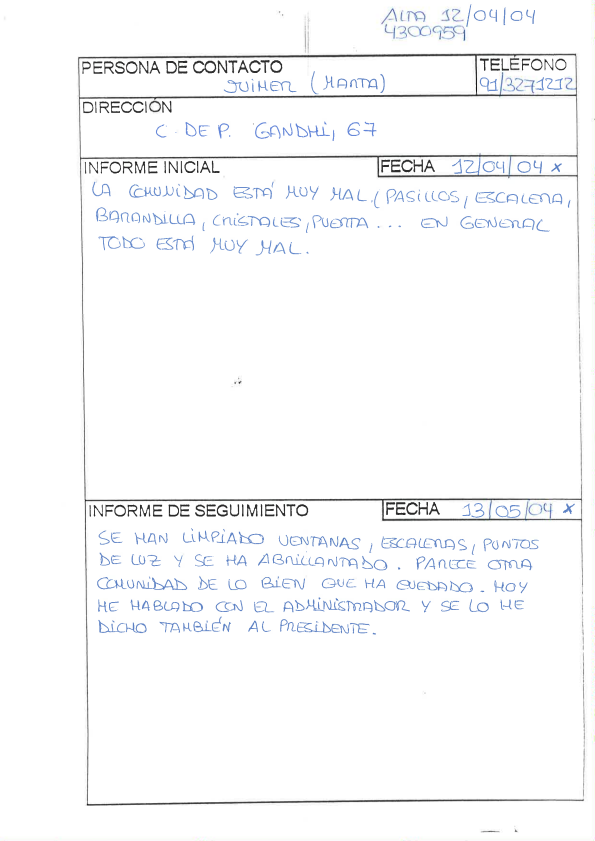 ALTA 12/04/04
4300959
PERSONA DE CONTACTO
TELÉFONO
JUIMER (MARTA)
91/3271212
DIRECCIÓN
C. DE P. GANDHI, 67
INFORME INICIAL
FECHA 12/04/04 x
LA COMUNIDAD ESTÁ MUY MAL. (PASILLOS, ESCALERA,
BARANDILLA, CRISTALES, PUERTA... EN GENERAL
TODO ESTÁ MUY MAL.
INFORME DE SEGUIMIENTO
FECHA 13/05/04 x
SE HAN LIMPIADO VENTANAS, ESCALERAS, PUNTOS
DE LUZ Y SE HA ABRILLANTADO. PARECE OTRA
COMUNIDAD DE LO BIEN QUE HA QUEDADO. HOY
HE HABLADO CON EL ADMINISTRADOR Y SE LO HE
DICHO TAMBIÉN AL PRESIDENTE.